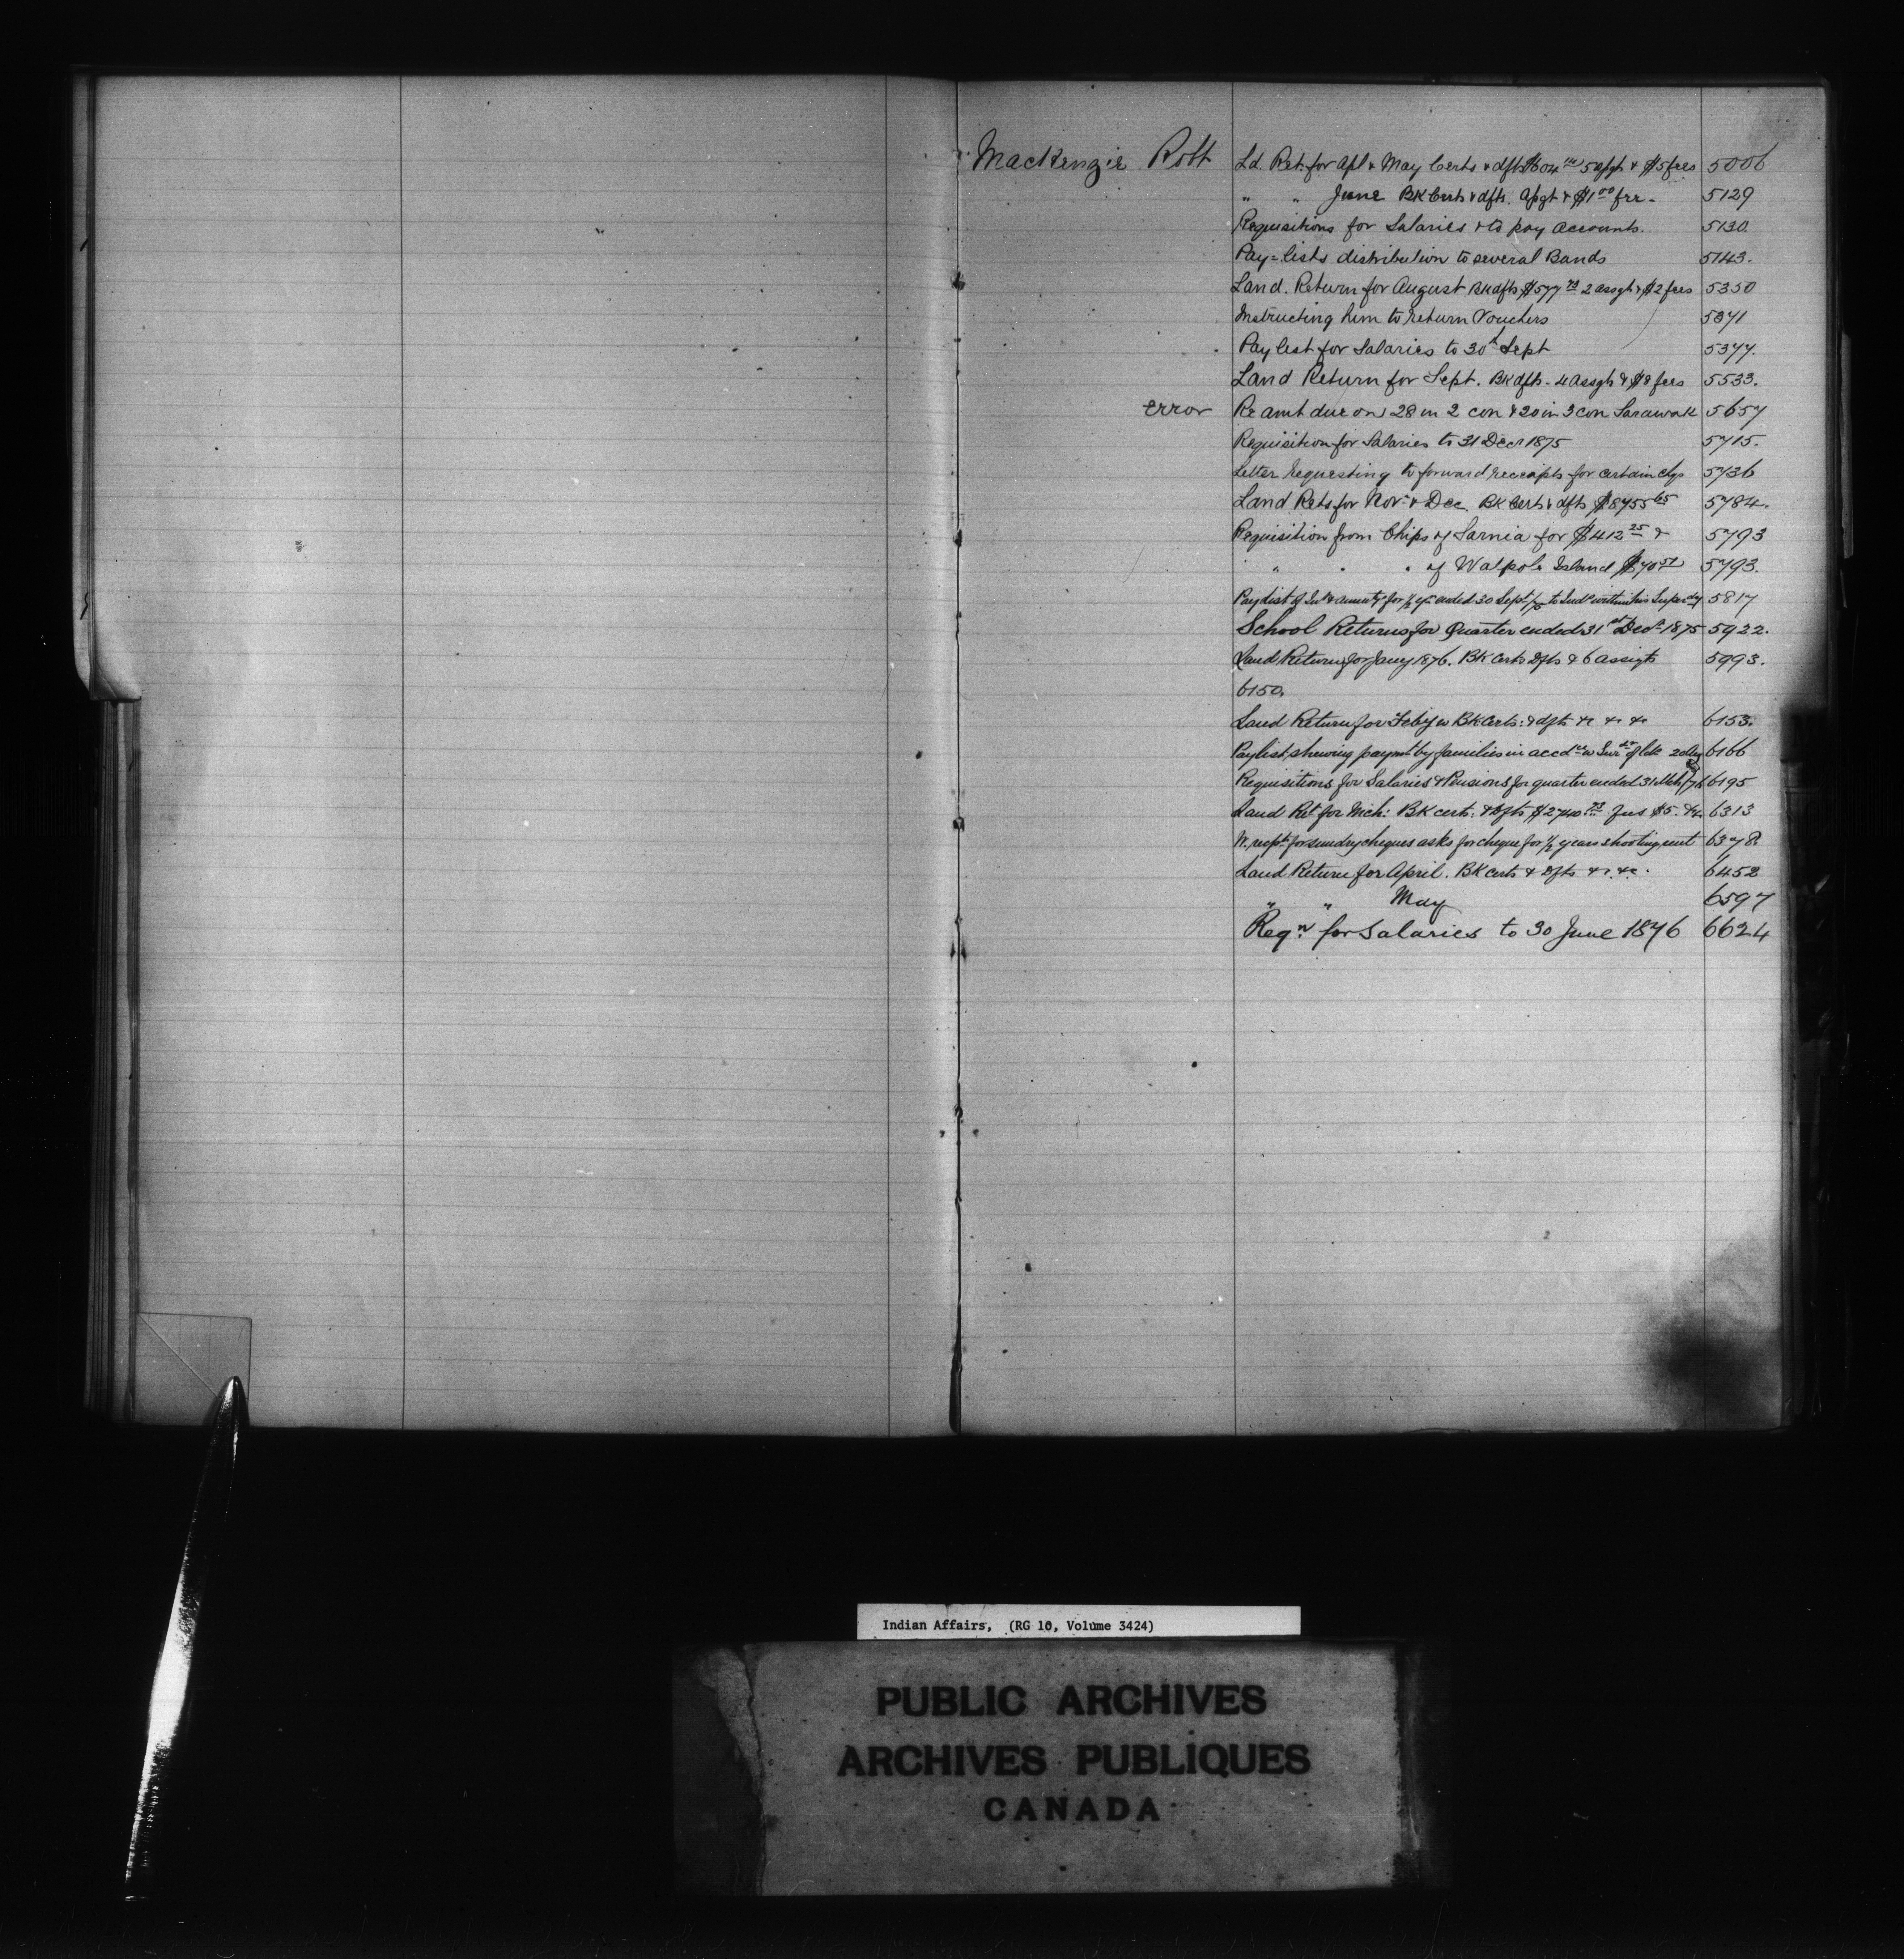 MacKenzie Robt Ld. Ret. for Apl & May Certs & dfts $604 5 & $5 fees 5006
" " June BK Certs & dfts. & $1 00 fee - 5129
Requisitions for Salaries & to pay accounts. 5130.
Pay-lists distribution to several Bands 5143.
Land. Return for August BK dfts $577 73 2 assgts & $2 fees 5350
Instructing him to return Vouchers
Pay list for Salaries to 30th Sept 5377.
Land Return for Sept. BK dfts - 4 Assgts & $8 fees 5533.
error Re amt due on 28 in 2 con & 20 in 3 con Sarawak 5657
Requisition for Salaries to 31 Decr 1875 5715.
Letter requesting to forward receipts for certain chqs 5736
Land Rets for Novr & Dec BK Certs & dfts $8755 65 5784.
Requisition from Chips of Sarnia for $412 25 & 5793
" " " of Walpole Island $70 51 5793.
Paylist of Int & annuity for ½ yr ended 30 Sept/75 to Inds within his Superdy 5817
School Returns for Quarter ended 31st Decr 1875 5922.
Land Return for Jany 1876. BK Certs Dfts & 6 assigts 5993.
6150.
Land Return for Feby w BK Certs: & dfts &c &c &c 6153.
Paylist shewing paymt by families in accdce w of 20 Aug 6166
Requisitions for Salaries & Pensions for quarter ended 31 Mch/76 6195
Land Ret for Mch: BK certs: & Dfts $2740 73 fees $5. &c. 6313
W. recpts for sundry cheques asks for cheque for ½ years shooting rent 6378.
Land Return for April. BK Certs & Dfts &c. &c. 6452
" " May 6597
Reqn. for Salaries to 30 June 1876 6624
Indian Affairs, (RG 10, Volume 3424)
PUBLIC ARCHIVES
ARCHIVES PUBLIQUES
CANADA